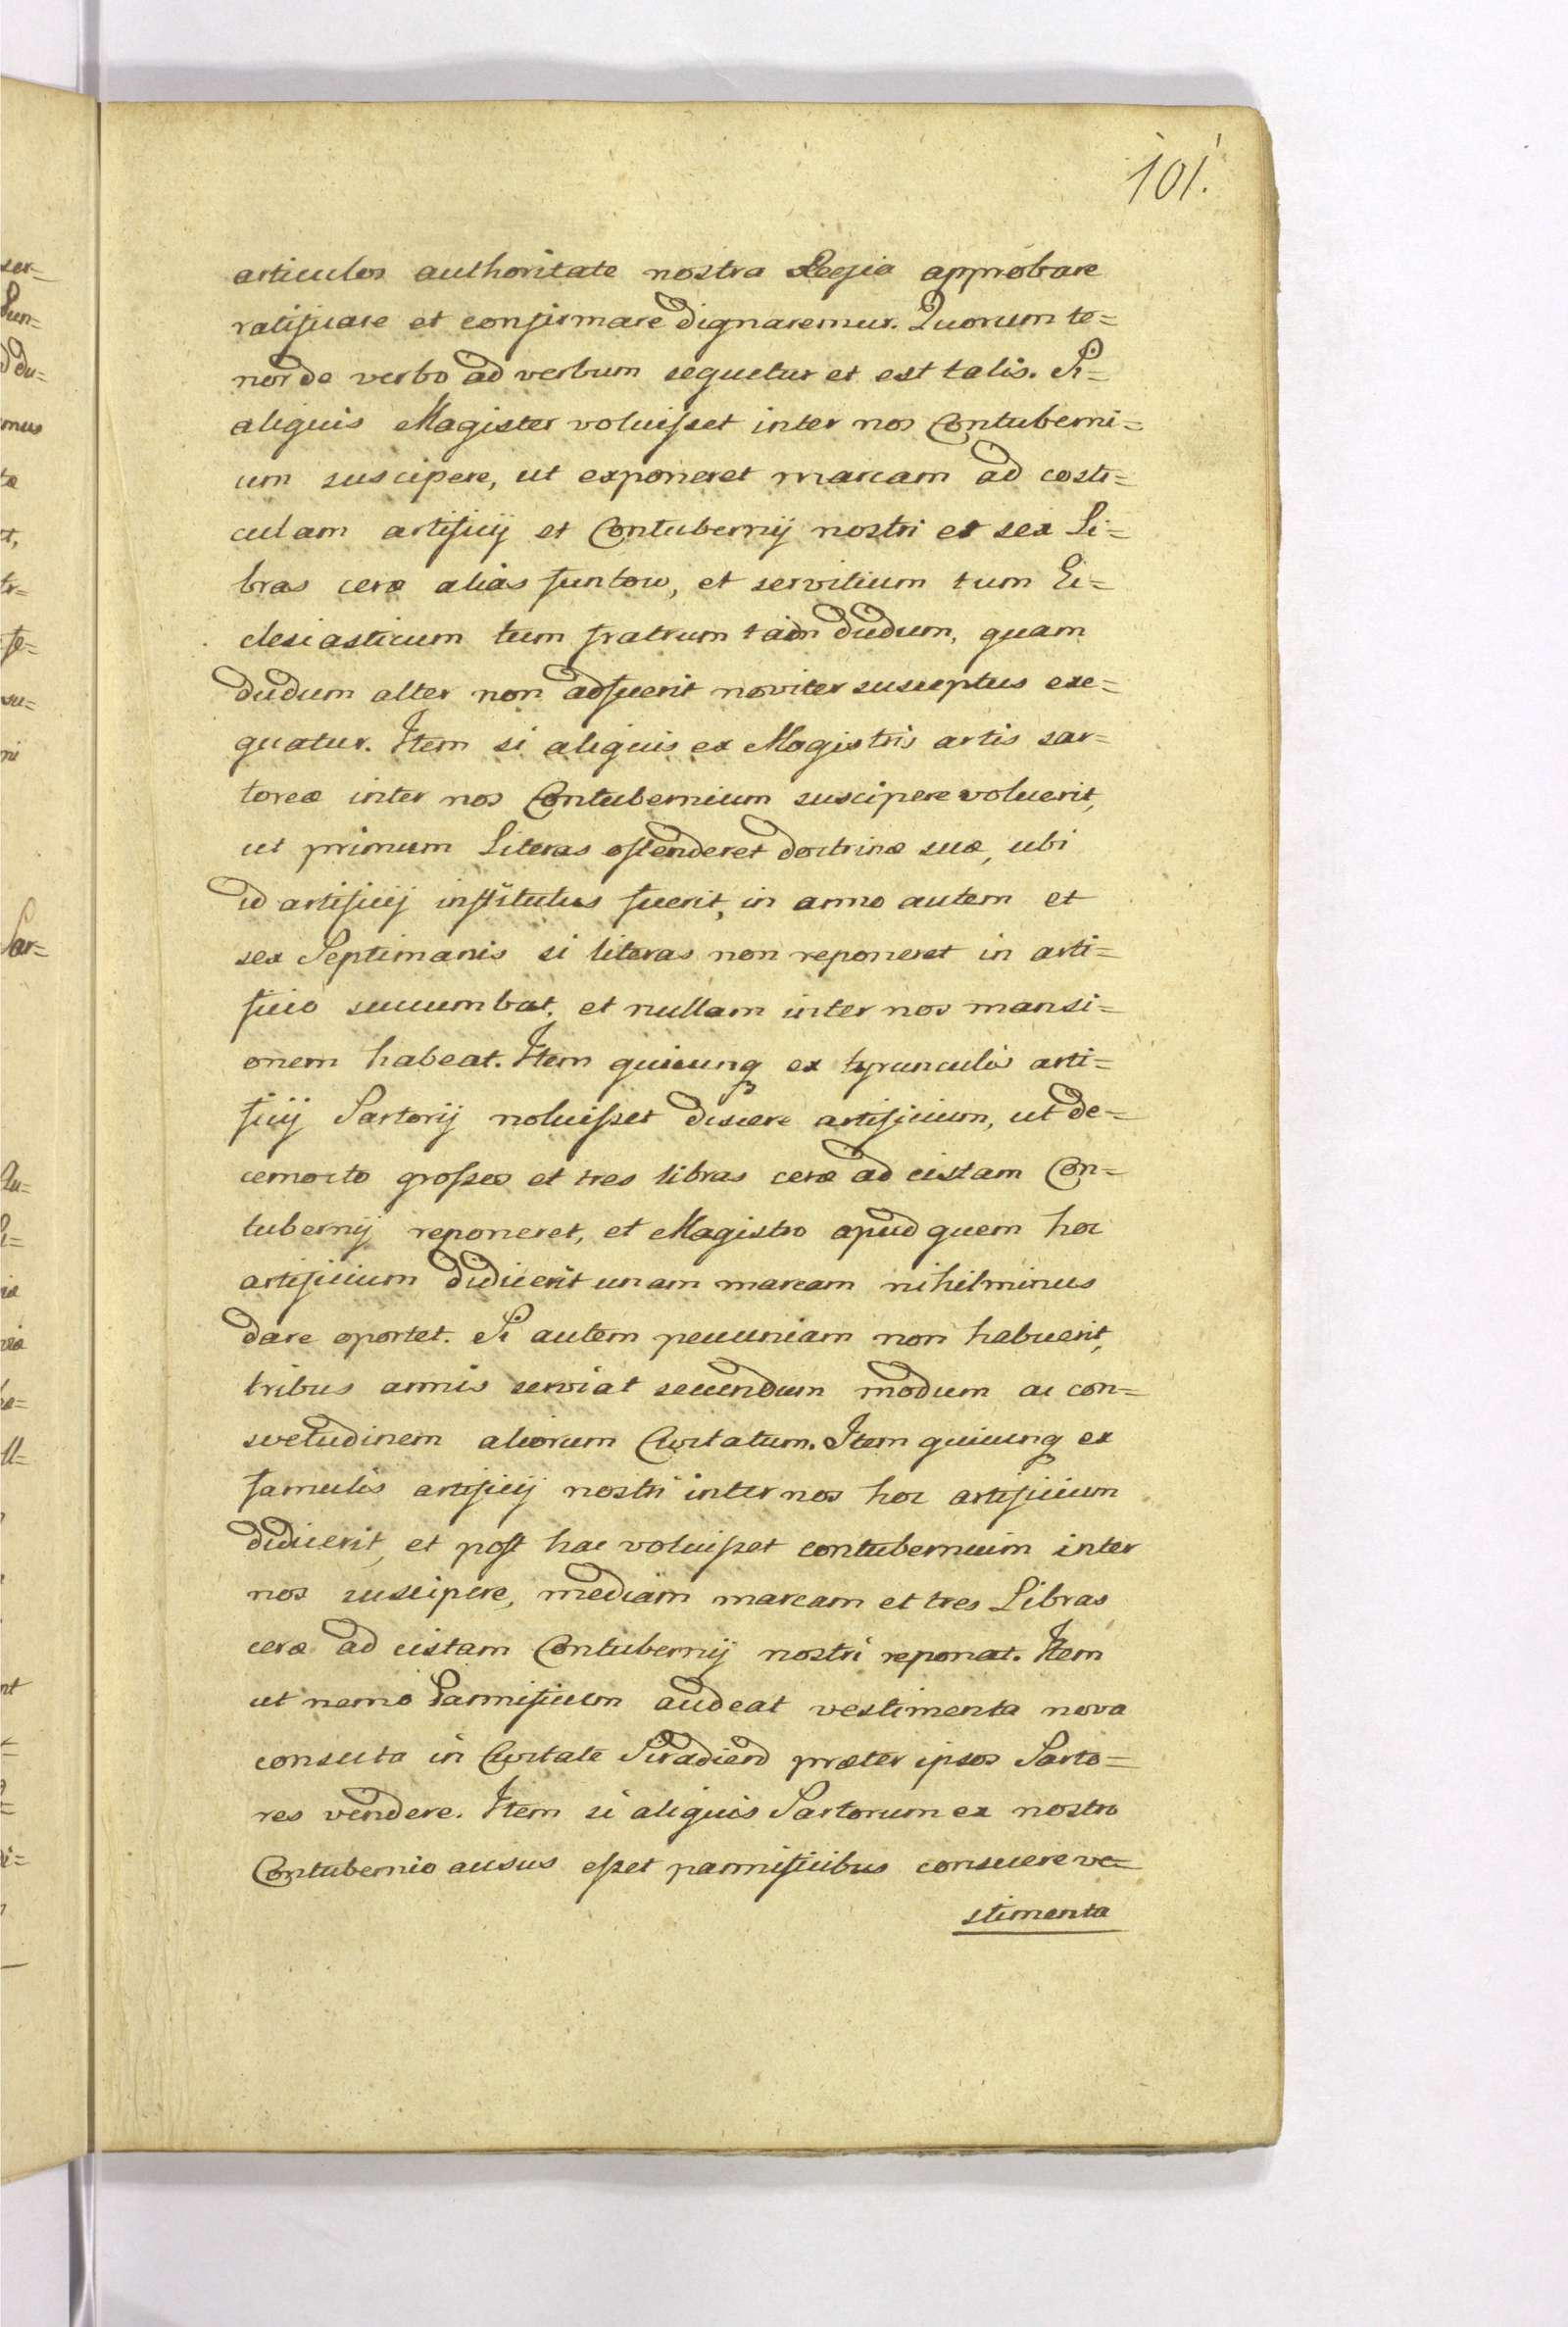 101.
articulos authoritate nostra Regia approbare
ratificare et confirmare dignaremur. Quorum te=
nor de verbo ad verbum sequetur et est talis. Si=
aliquis Magister voluisset inter nos Contuberni=
um suscipere, ut exponeret marcam ad costi=
culam artificij et Contubernij nostri et sex Li=
bras ceræ alias funtow, et servitium tum Ec=
clesiasticum tum fratrum tam dudum, quam
dudum alter non adfuerit noviter susceptus exe=
quatur. Item si aliquis ex Magistris artis sar=
toreæ inter nos Contubernium suscipere voluerit,
ut primum Literas ostenderet doctrinæ suæ, ubi
id artificij institutus fuerit, in anno autem et
sex Septimanis si literas non reponeret in arti=
ficio succumbat, et nullam inter nos mansi=
onem habeat. Item quicunq ex tyrunculis arti=
ficij Sartorij noluisset discere artificium, ut de=
cemocto grosses et tres libras ceræ ad cistam Con=
tubernij reponeret, et Magistro apud quem hoc
artificium didicerit unam marcam nihilminus
dare oportet. Si autem pecuniam non habuerit,
tribus annis serviat secundum modum ac con=
svetudinem aliorum Civitatum. Item quicunq ex
famulis artificij nostri inter nos hoc artificium
didicerit, et post hac voluisset contubernium inter
nos suscipere, mediam marcam et tres Libras
ceræ ad cistam Contubernij nostri reponat. Item
ut nemo Pannificum audeat vestimenta nova
consuta in Civitate Siradiend præter ipsos Sarto=
res vendere. Item si aliquis Sartorum ex nostro
Contubernio ausus esset pannificibus consuere ve=
stimenta
ser=
du=
mus
et,
tr=
fe=
ni
Sar=
Qu=
nt